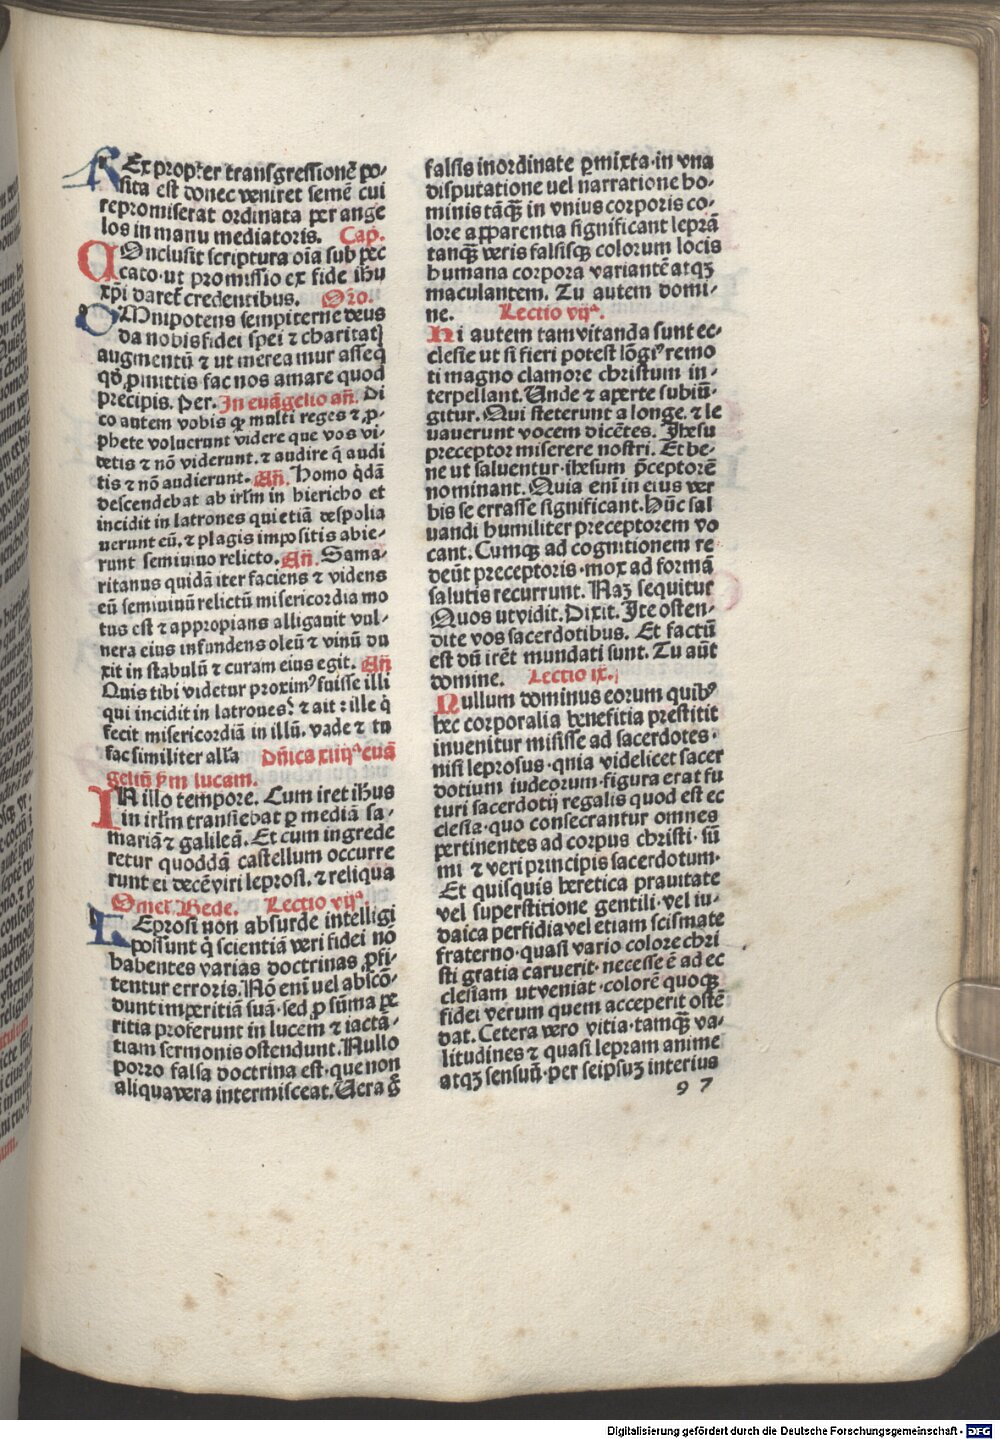 REx propter transgressionē po-
sita est donec veniret semē cui
repromiserat ordinata per ange
los in manu mediatoris. Cap.
COnclusit scriptura oīa sub pec
cato·ut promissio ex fide ihu
xp̄i daret̄ credentibus. Oro.
OMnipotens sempiterne deus
da nobis fidei spei ⁊ charitatꝭ
augmentū ⁊ ut merea mur assequi
qđ ꝓmittis fac nos amare quod
precipis. Per. In euāgelio añ. Di
co autem vobis ꝙ multi reges ⁊ ꝓ-
phete voluerunt videre que vos vi-
detis ⁊ nō viderunt.⁊ audire q̄ audi
tis ⁊ nō audierunt. Añ. Homo q̇dā
descendebat ab irl̄m in hiericho et
incidit in latrones qui etiā despolia
uerunt eū.⁊ plagis impositis abie-
runt semiuiuo relicto. Añ. Sama-
ritanus quidā iter faciens ⁊ videns
eū semiuiuū relictū misericordia mo
tus est ⁊ appropians alligauit vul-
nera eius infundens oleū ⁊ vinū du
xit in stabulū ⁊ curam eius egit. Añ
Quis tibi videtur proximꝰ fuisse illi
qui incidit in latrones? ⁊ ait: ille q̇
fecit misericordiā in illū. vade ⁊ tu
fac similiter alła Dn̄ica xiiijᵃ euā
geliū ẜm lucam.
IN illo tempore. Cum iret ihus
in irl̄m transiebat ꝑ mediā sa-
mariā ⁊ galileā. Et cum ingrede
retur quoddā castellum occurre
runt ei decē viri leprosi.⁊ reliqua
Omel. Bede. Lectio vijᵃ.
LEprosi non absurde intelligi
possunt q̇ scientiā veri fidei nō
habentes varias doctrinas ꝓfi-
tentur erroris. Nō enī uel abscō-
dunt imperitiā suā·sed ꝓ sūma pe
ritia proferunt in lucem ⁊ iactā-
tiam sermonis ostendunt. Nullo
porro falsa doctrina est·que non
aliqua vera intermisceat. Uera g̊
falsis inordinate ꝑmixta·in vna
disputatione uel narratione ho-
minis tāꝙ̄ in vnius corporis co-
lore apparentia significant leprā
tanꝙ̄ veris falsisqꝫ colorum locis
humana corpora variantē atqꝫ
maculantem. Tu autem domi-
ne. Lectio viijᵃ.
HI autem tam vitanda sunt ec-
clesie ut si fieri potest lōgiꝰ remo
ti magno clamore christum in-
terpellant. Unde ⁊ aperte subiū-
gitur. Qui steterunt a longe.⁊ le
uauerunt vocem dicētes. Ihesu
preceptor miserere nostri. Et be-
ne ut saluentur·ihesum p̄ceptorē
nominant. Quia enī in eius ver
bis se errasse significant·Hūc sal
uandi humiliter preceptorem vo
cant. Cumqꝫ ad cognitionem re
deūt preceptoris·mox ad formā
salutis recurrunt. Naꝫ sequitur
Quos ut vidit. Dixit. Ite osten-
dite vos sacerdotibus. Et factū
est dū irēt mundati sunt. Tu aūt
domine. Lectio ix.
NUllum dominus eorum quibꝰ
hec corporalia benefitia prestitit
inuenitur misisse ad sacerdotes·
nisi leprosus·quia videlicet sacer
dotium iudeorum·figura erat fu
turi sacerdotij regalis quod est ec
clesia·quo consecrantur omnes
pertinentes ad corpus christi·sū
mi ⁊ veri principis sacerdotum·
Et quisquis heretica prauitate
vel superstitione gentili·vel iu-
daica perfidia vel etiam scismate
fraterno·quasi vario colore chri
sti gratia caruerit·necesse ē ad ec
clesiam ut veniat·colorē quoqꝫ
fidei verum quem acceperit ostē
dat. Cetera vero vitia·tamꝙ̄ va-
litudines ⁊ quasi lepram anime
atqꝫ sensuū·per seipsuꝫ interius
97
Digitalisierung gefördert durch die Deutsche Forschungsgemeinschaft - DFG